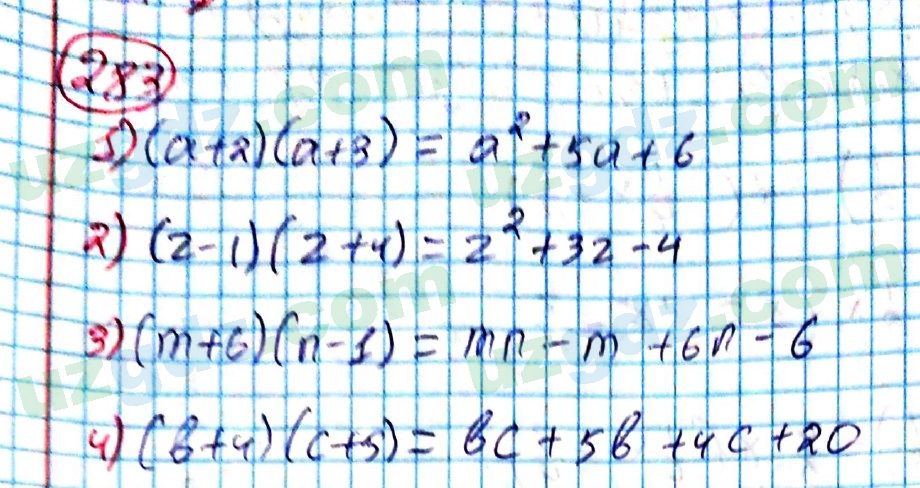 283
1) (a+2)(a+3) = a²+5a+6
2) (z-1)(z+4) = z²+3z-4
3) (m+6)(n-1) = mn-m+6n-6
4) (b+4)(c+5) = bc+5b+4c+20
uzgdz.com
uzgdz.com
uzgdz.com
uzgdz.com